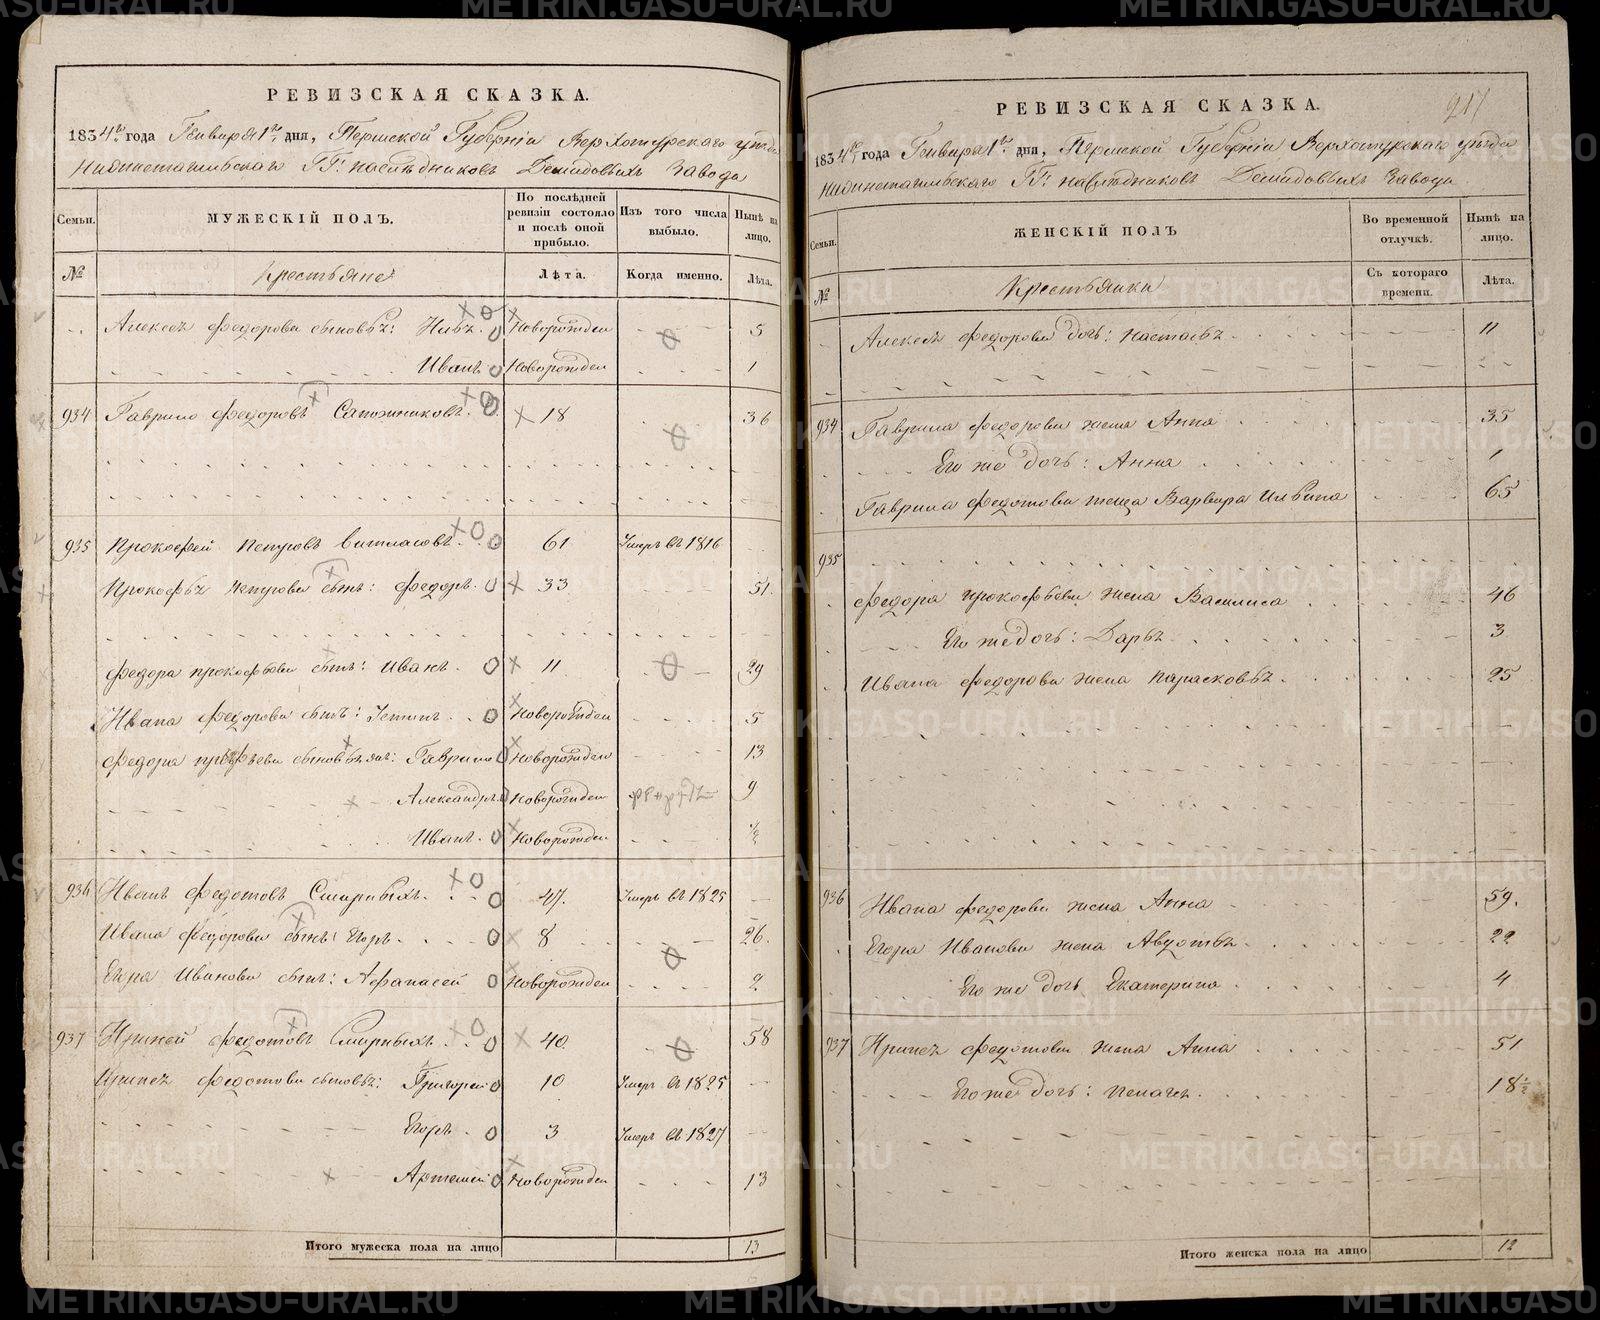 РЕВИЗСКАЯ СКАЗКА.
1834 го года Генваря 1 го дня, Пермской Губерніи Верхотурскаго уезда
Нижнетагильскаго ГГ: наследниковъ Демидовыхъ завода
Семьи.
МУЖЕСКІЙ ПОЛЪ.
По послѣдней ревизіи состояло и послѣ оной прибыло.
Изъ того числа выбыло.
Нынѣ на лицо.
№
Крестьяне
Лѣта.
Когда именно.
Лѣта.
Алексея Федорова сыновья: Новорожден 5
Иванъ Новорожден 1
934 Гаврило Федоровъ Сапожниковъ 18 36
935 Прокофей Петровъ 61 Умеръ въ 1816
Прокофья Петрова сынъ: Федоръ 33 51
Федора Прокофьева сынъ: Иванъ 11 29
Ивана Федорова сынъ: Новорожден 5
Федора сыновья: Гаврило Новорожден 13
Александръ Новорожден 9
Иванъ Новорожден ½
936 Иванъ Федотовъ Смирныхъ 47 Умеръ въ 1825
Ивана Федорова сынъ: Егоръ 8 26
Егора Иванова сынъ: Афанасей Новорожден 2
937 Ириней Федотовъ Смирныхъ 40 58
Иринея Федотова сыновья: Григорей 10 Умеръ въ 1825
Егоръ 3 Умеръ въ 1827
Артемей Новорожден 13
Итого мужеска пола на лицо 13
217
РЕВИЗСКАЯ СКАЗКА.
1834 го года Генваря 1 го дня, Пермской Губерніи Верхотурскаго уезда
Нижнетагильскаго ГГ: наследниковъ Демидовыхъ завода
Семьи.
ЖЕНСКІЙ ПОЛЪ
Во временной отлучкѣ.
Нынѣ на лицо.
№
Крестьянки
Съ котораго времени.
Лѣта.
Алексея Федорова дочь: Настасья 11
934 Гаврила Федорова жена Анна 35
Его же дочь: Анна 1
Гаврила Федотова теща Варвара 65
935
Федора Прокофьева жена Василиса 46
Его же дочь: Дарья 3
Ивана Федорова жена Парасковья 25
936 Ивана Федорова жена Анна 59
Егора Иванова жена Авдотья 22
Его же дочь Екатерина 4
937 Иринея Федотова жена Анна 51
Его же дочь: 18½
Итого женска пола на лицо 12
METRIKI.GASO-URAL.RU